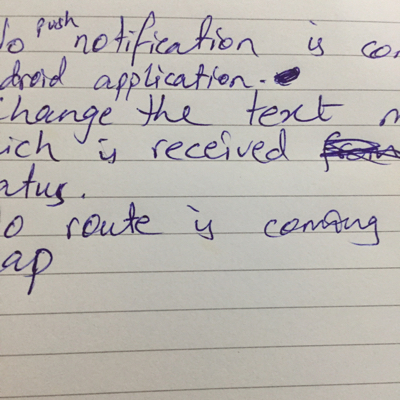 No push notification is com
droid application.
change the text m
ich is received
atus.
No route is coming
ap